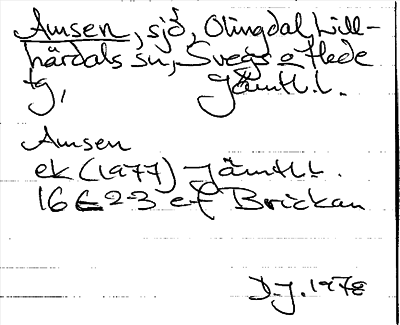 Amsen, sjö, Olingdal, Lill-
härdals sn, Svegs o Hede
tg, Jämtl.l.
Amsen
ek (1977) Jämtl.l.
16E 2-3 ef Brickan
D.J. 1978